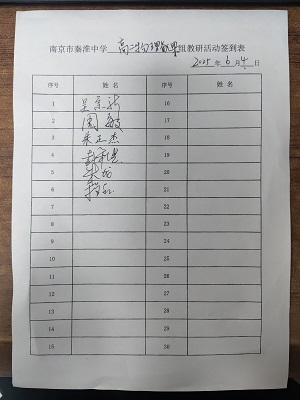 南京市秦淮中学 高二物理备课组教研活动签到表
2025 年 6 月 4 日
序号 姓 名 序号 姓 名
1 16
2 周敏 17
3 朱正杰 18
4 19
5 20
6 21
7 22
8 23
9 24
10 25
11 26
12 27
13 28
14 29
15 30